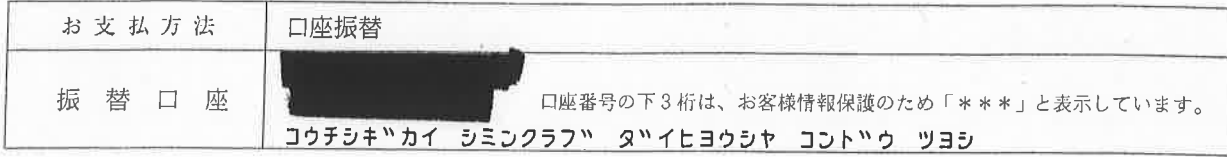 お支払方法 口座振替
振替口座 口座番号の下3桁は、お客様情報保護のため「***」と表示しています。
コウチシギカイ シミンクラブ ダイヒヨウシヤ コンドウ ツヨシ